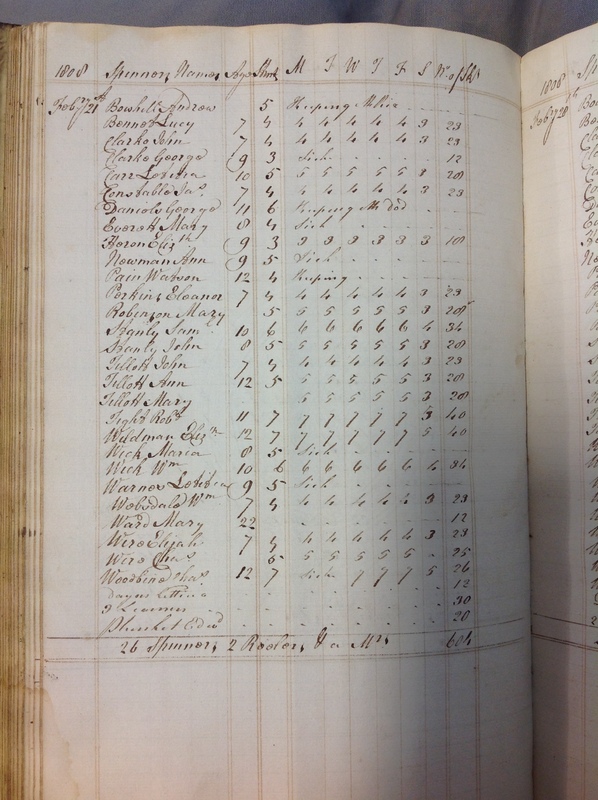 1808 Spinners Names Age Stint M T W T F S No of Sks
Feby 21st Boshell Andrew 5 Keeping
Bennet Lucy 7 4 4 4 4 4 4 3 23
Clarke John 7 4 4 4 4 4 4 3 23
Clarke George 9 3 Sick - - - - 12
Carr Lovina 10 5 5 5 5 5 5 3 28
Constable Jas. 7 4 4 4 4 4 4 3 23
Daniels George 11 6 Keeping - -
Everett Mary 8 4 Sick - - - -
Heron Elizth 9 3 3 3 3 3 3 3 18
Newman Ann 9 5 Sick - - - -
Pain Watson 12 4 Keeping - - -
Perkins Eleanor 7 4 4 4 4 4 4 3 23
Robinson Mary 5 5 5 5 5 5 3 28
Stanly Saml 10 6 6 6 6 6 6 4 34
Stanly John 8 5 5 5 5 5 5 3 28
Tillott John 7 4 4 4 4 4 4 3 23
Tillott Ann 12 5 5 5 5 5 5 3 28
Tillott Mary 5 5 5 5 5 3 28
Tight Robt 11 7 7 7 7 7 7 5 40
Wildman Elizth 12 7 7 7 7 7 7 5 40
Wick Maria 8 5 Sick - - - -
Wick Wm 10 6 6 6 6 6 6 4 34
Warnes 9 5 Sick - - - -
Wobsdale Wm 7 4 4 4 4 4 4 3 23
Ward Mary 22 - - - - - - 12
Were Elijah 7 4 4 4 4 4 4 3 23
Were Chas. 5 5 5 5 5 5 - 25
Woodbine Thas. 12 7 Sick - 7 7 7 5 26
- - - - - - 12
3 Learners - - - - - - 30
Plunket Edwd - - - - - - 20
26 Spinners 2 Reelers & a Mrs 604
1808
Feby 28